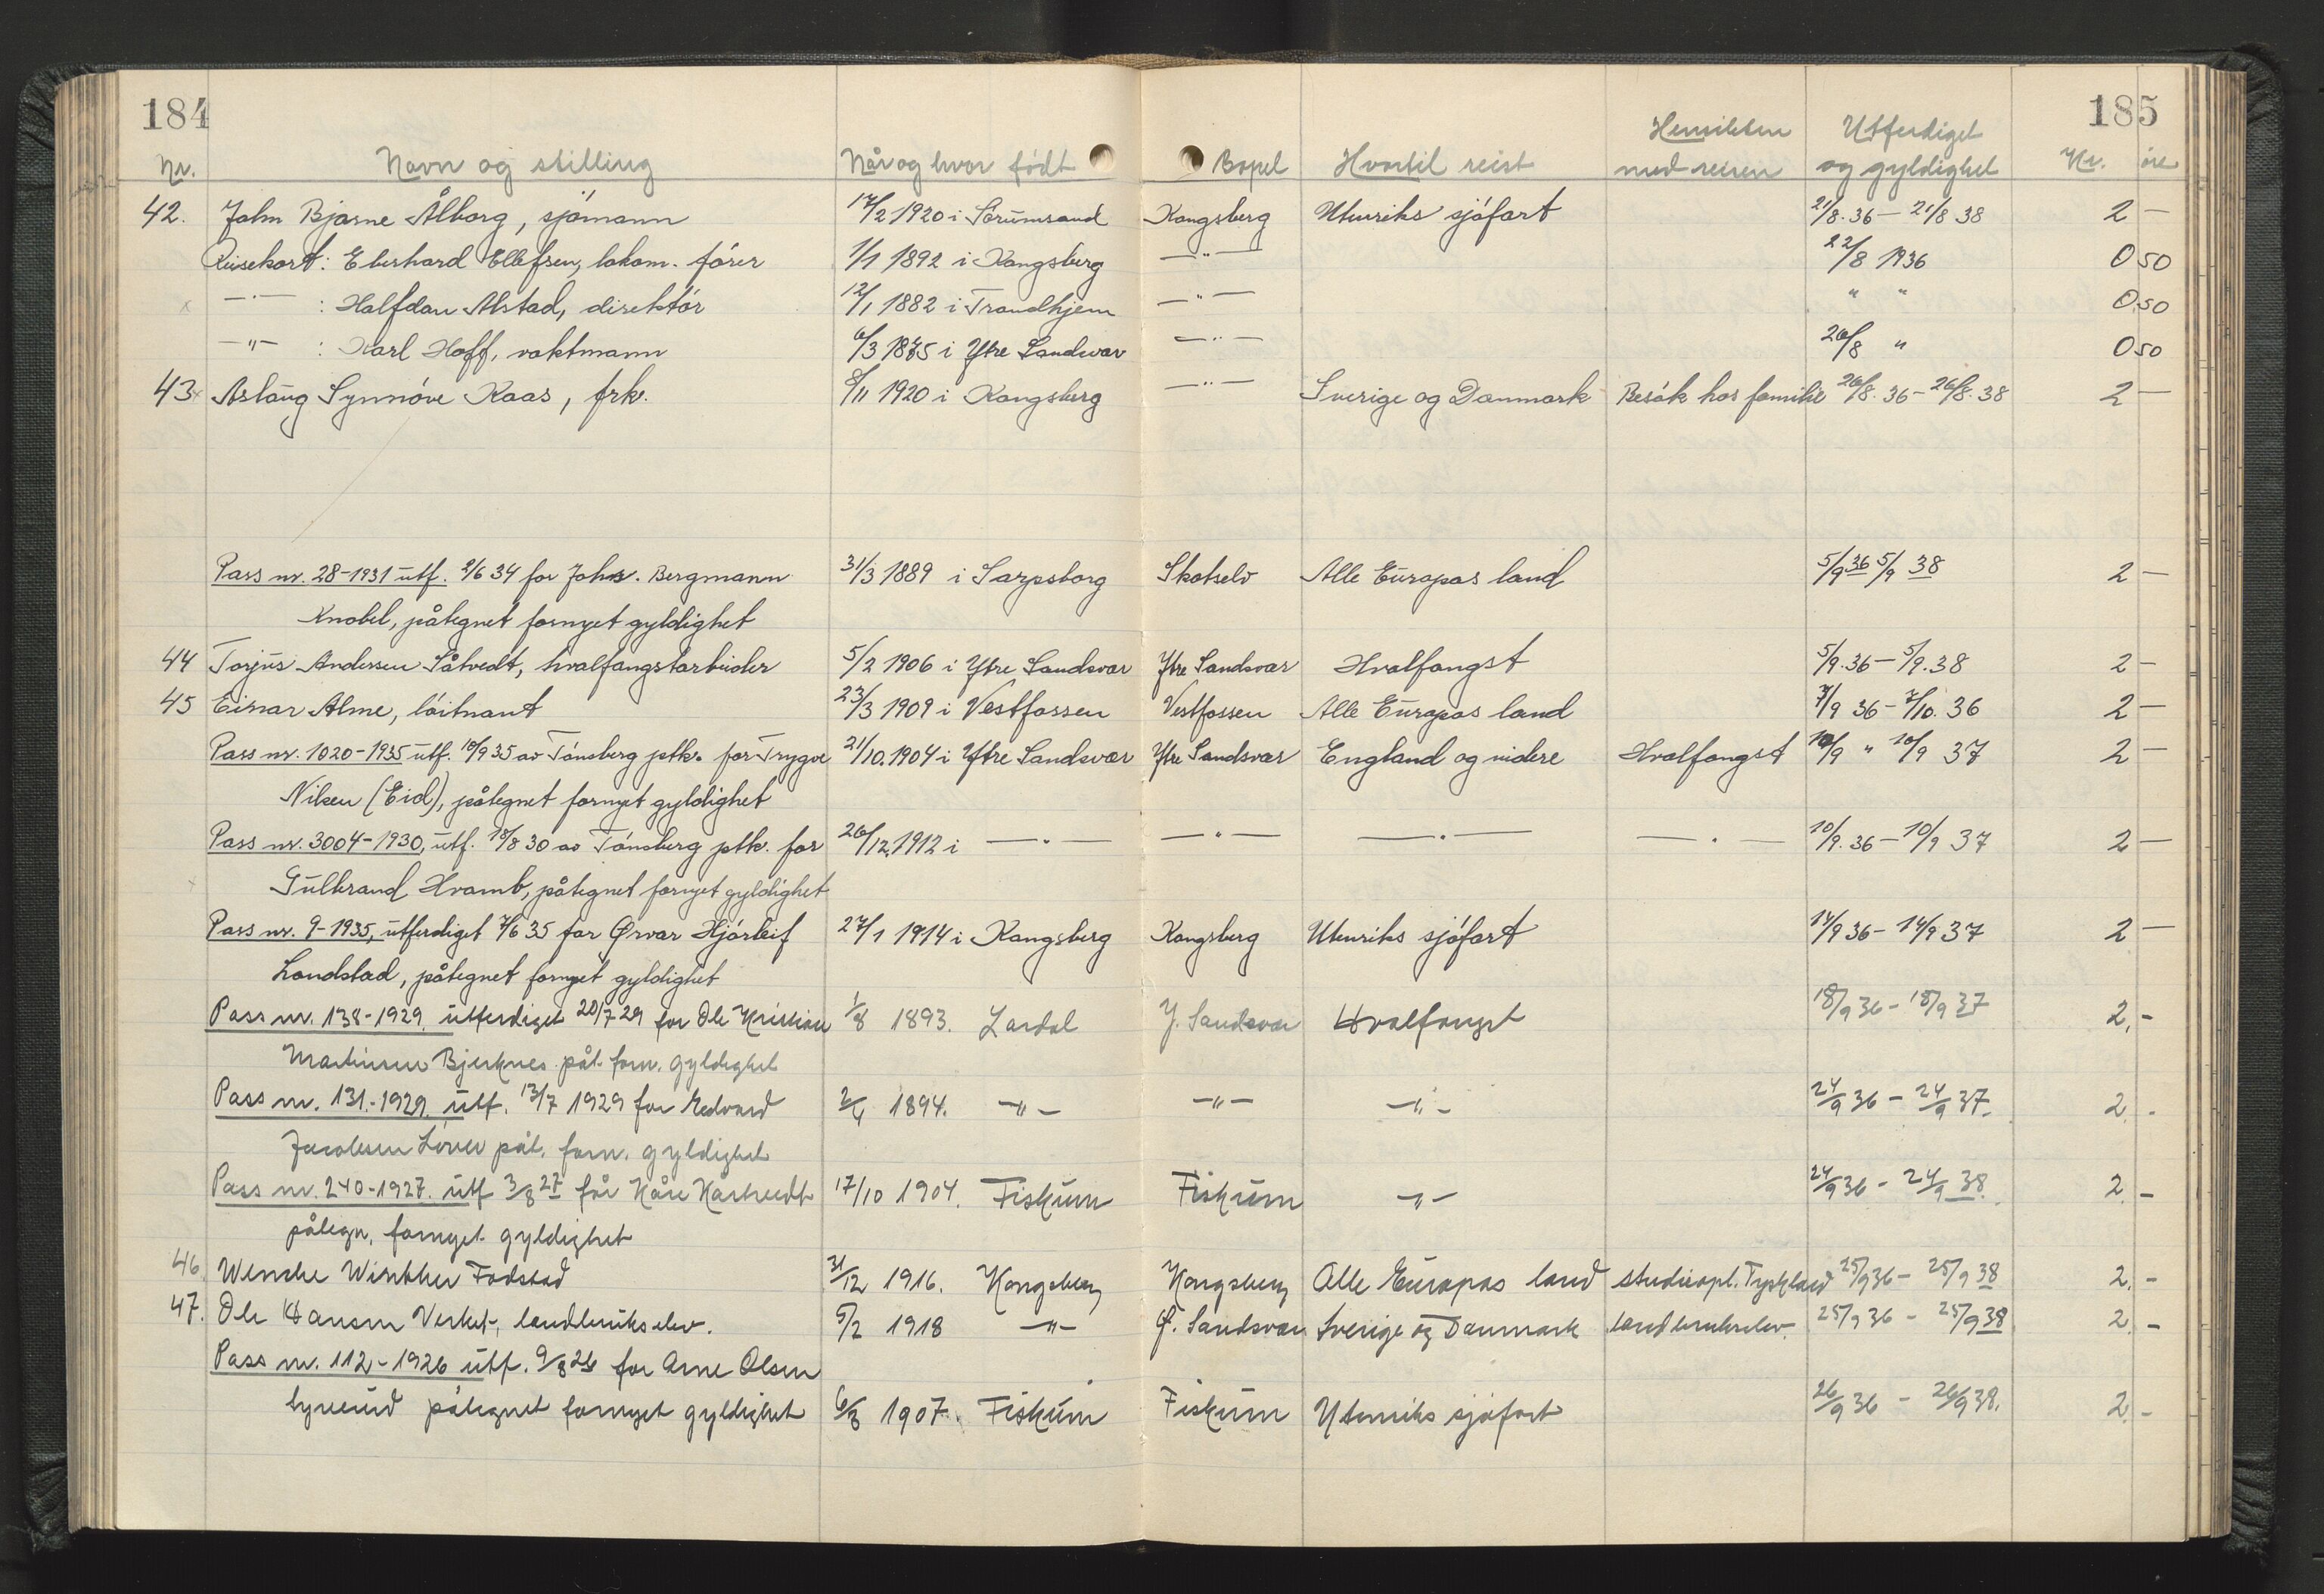 184 185
Nr. Navn og stilling Når og hvor født Bopel Hvortil reist Hensikten med reisen Utferdiget og gyldighet Kr. øre
42. John Bjarne Ålborg, sjömann 17/2 1920 i Sörumsand Kongsberg Utenriks sjöfart 21/8. 36 – 21/8 38 2 —
Reisekort: Eberhard Ellefsen, lokom. förer 1/1 1892 i Kongsberg —"— 22/8 1936 0 50
—"— : Halfdan Alstad, direktör 12/1 1882 i Trondhjem —"— " " 0.50
—"— : Karl Hoff, vaktmann 6/3 1875 i Ytre Sandsvær —"— 26/8 " 0 50
43 Aslaug Synnöve Kaas, frk. 8/11 1920 i Kongsberg —"— Sverige og Danmark Besök hos familie 26/8. 36 – 26/8. 38 2 —
Pass nr. 28-1931 utf. 2/6 34 for Johs. Bergmann 31/3 1889 i Sarpsborg Skotselv Alle Europas land 5/9 36 5/9 38 2 —
Knobel, påtegnet fornyet gyldighet
44 Torjus Andersen Såtvedt, hvalfangstarbeider 5/2 1906 i Ytre Sandsvær Ytre Sandsvær Hvalfangst 5/9. 36 – 5/9. 38 2 —
45 Einar Alme, löitnant 23/3 1909 i Vestfossen Vestfossen Alle Europas land 7/9 36 – 7/10. 36 2 —
Pass nr. 1020-1935 utf. 10/9 35 av Tönsberg ptk. for Trygve 21/10. 1904 i Ytre Sandsvær Ytre Sandsvær England og videre Hvalfangst 10/9 " 10/9 37 2 —
Nilsen (Eid), påtegnet fornyet gyldighet
Pass nr. 3004-1930, utf. 18/8 30 av Tönsberg ptk. for 26/12. 1912 i —"— —"— —"— —"— 10/9. 36 – 10/9 37 2 —
Gulbrand Hvamb, påtegnet fornyet gyldighet
Pass nr. 9-1935, utferdiget 7/6 35 for Ørvar Hjörleif 27/1 1914 i Kongsberg Kongsberg Utenriks sjöfart 14/9 36 – 14/9 37 2 —
Landstad, påtegnet fornyet gyldighet
Pass nr. 138-1929 utferdiget 20/7 29 for Ole Kristian 1/8 1893. Lardal Y. Sandsvær Hvalfangst 18/9 36 – 18/9 37 2,-
Martinsen Bjerknes påt. forn. gyldighet
Pass nr. 131.-1929. utf. 13/7 1929 for Edvard 2/4 1894. —"— —"— —"— 24/9 36 – 24/9 37. 2.-
Jacobsen påt. forn. gyldighet
Pass nr. 240-1927. utf 3/8 27 for Kåre 17/10 1904. Fiskum Fiskum —"— 24/9 36 – 24/9 38. 2.-
påtegn. fornyet gyldighet
46. Wenche Winther Fodstad 31/12 1916. Kongsberg Kongsberg Alle Europas land studieopl. Tyskland 25/9 36 – 25/9 38 2.-
47. Ole Hansen Verket, landbrukselev. 5/2 1918 —"— Ø. Sandsvær Sverige og Danmark landbrukselev. 25/9 36 – 25/9 38 2.-
Pass nr. 112-1926 utf. 9/8 26 for Arne Olsen
påtegnet fornyet gyldighet 6/8 1907. Fiskum Fiskum Utenriks sjöfart 26/9 36 – 26/9 38. 2.-